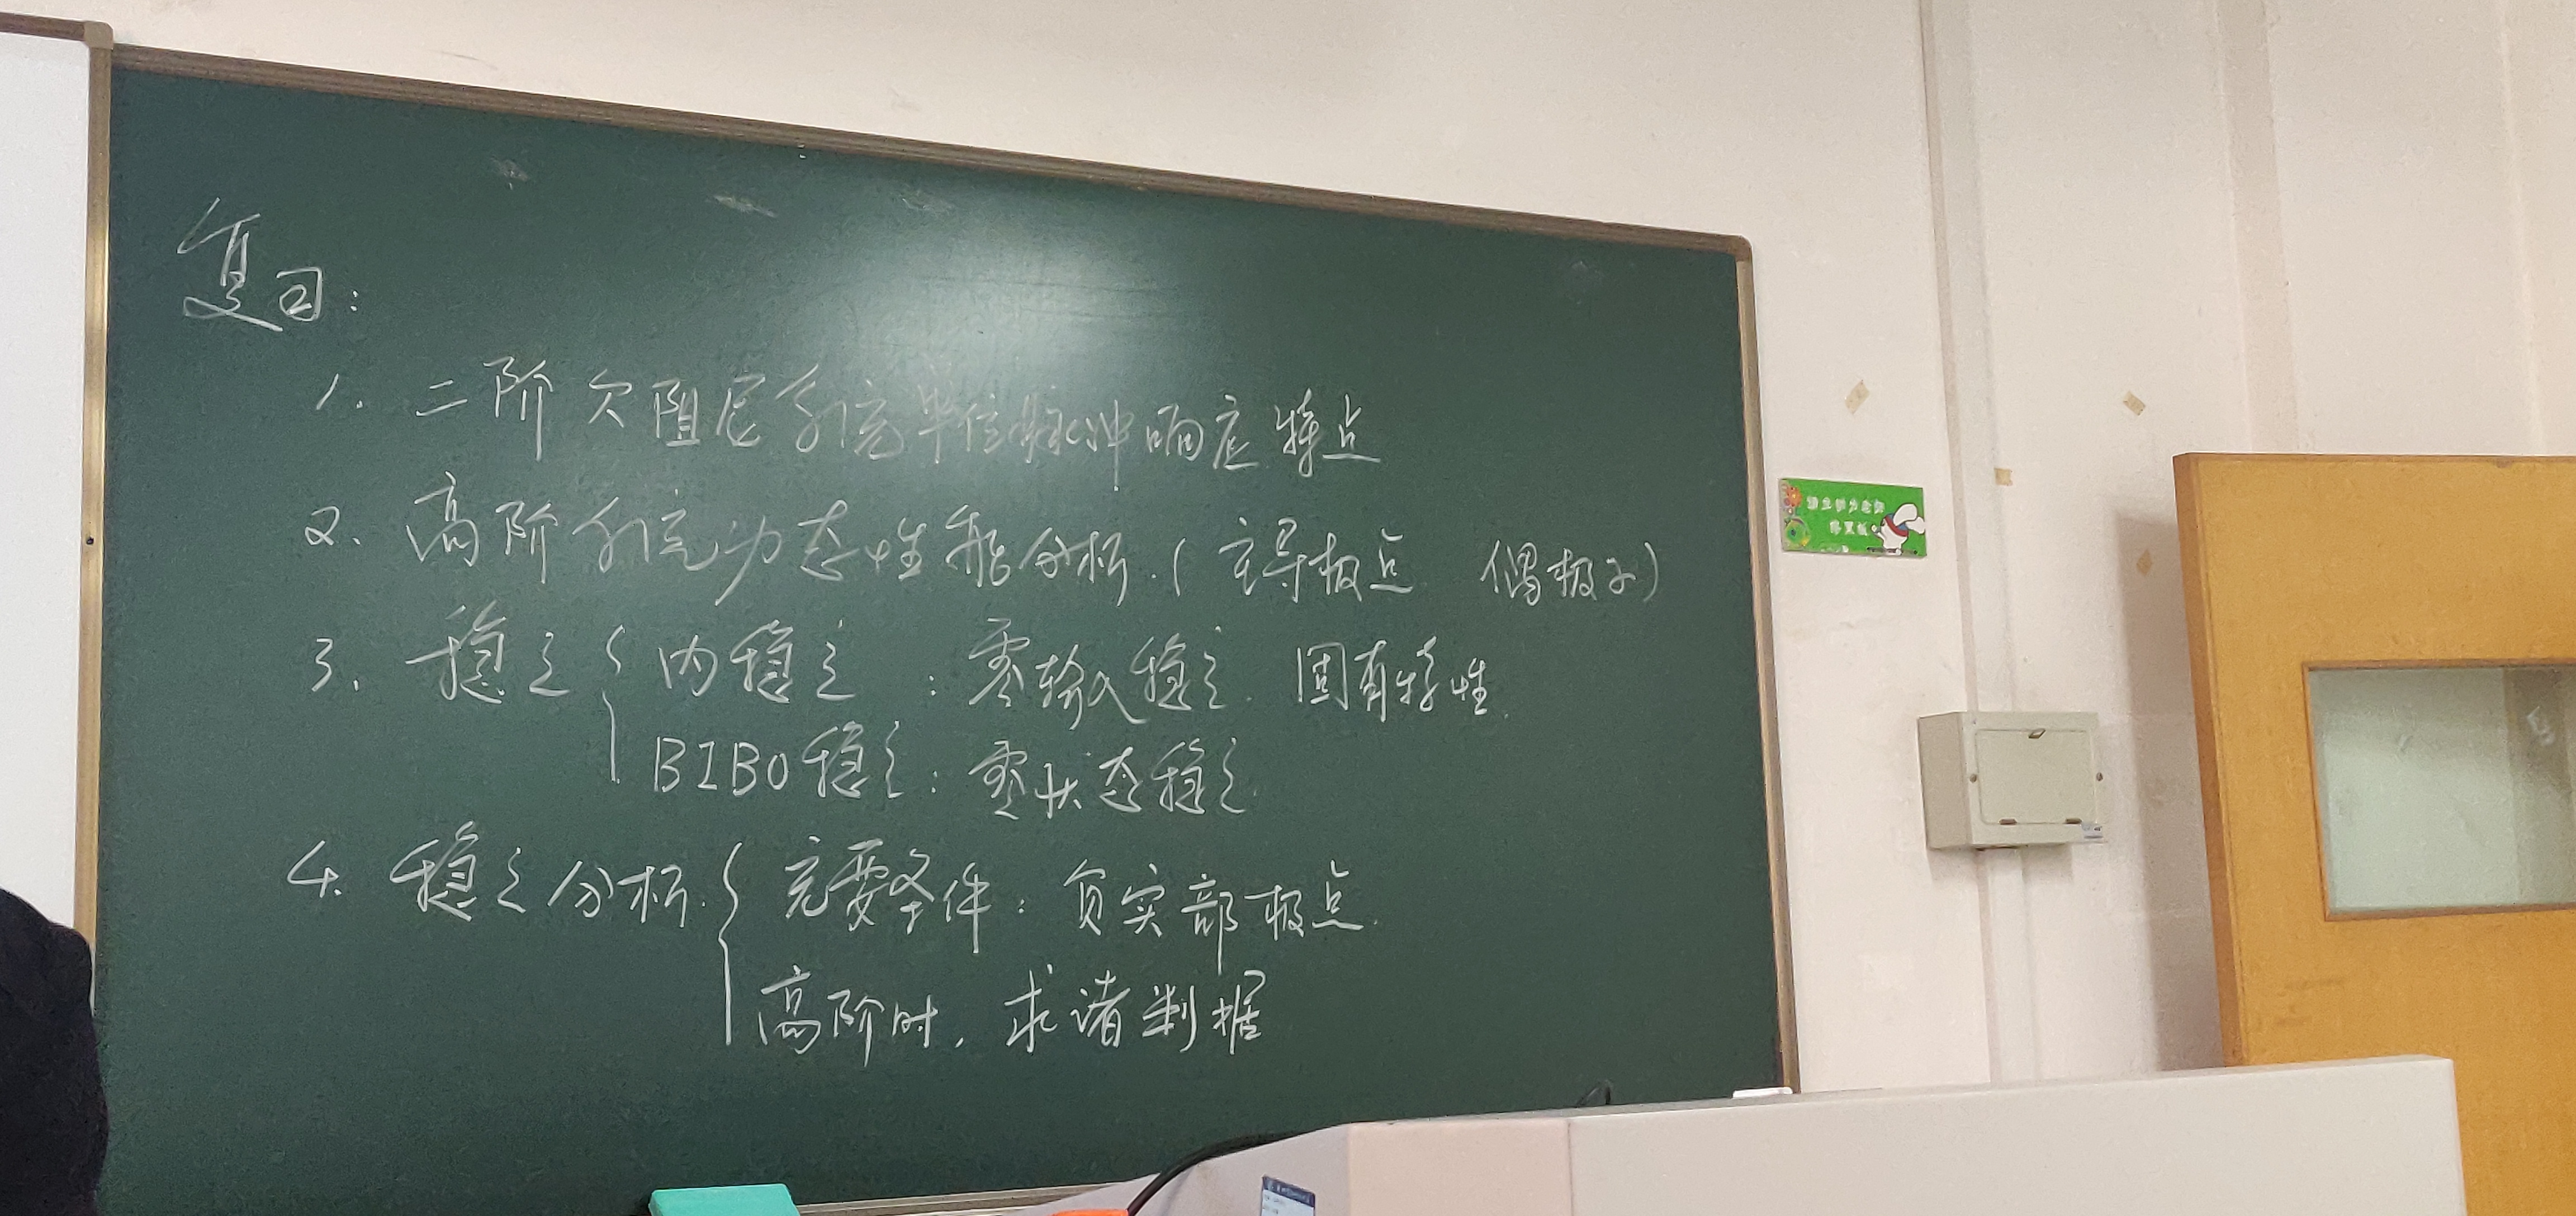 复习:
1. 二阶欠阻尼系统单位脉冲响应特点
2. 高阶系统动态性能分析.(主导极点 偶极子)
3. 稳定{内稳定:零输入稳定.固有特性.
BIBO稳定:零状态稳定
4. 稳定分析.{充要条件:负实部极点.
高阶时,求诸判据